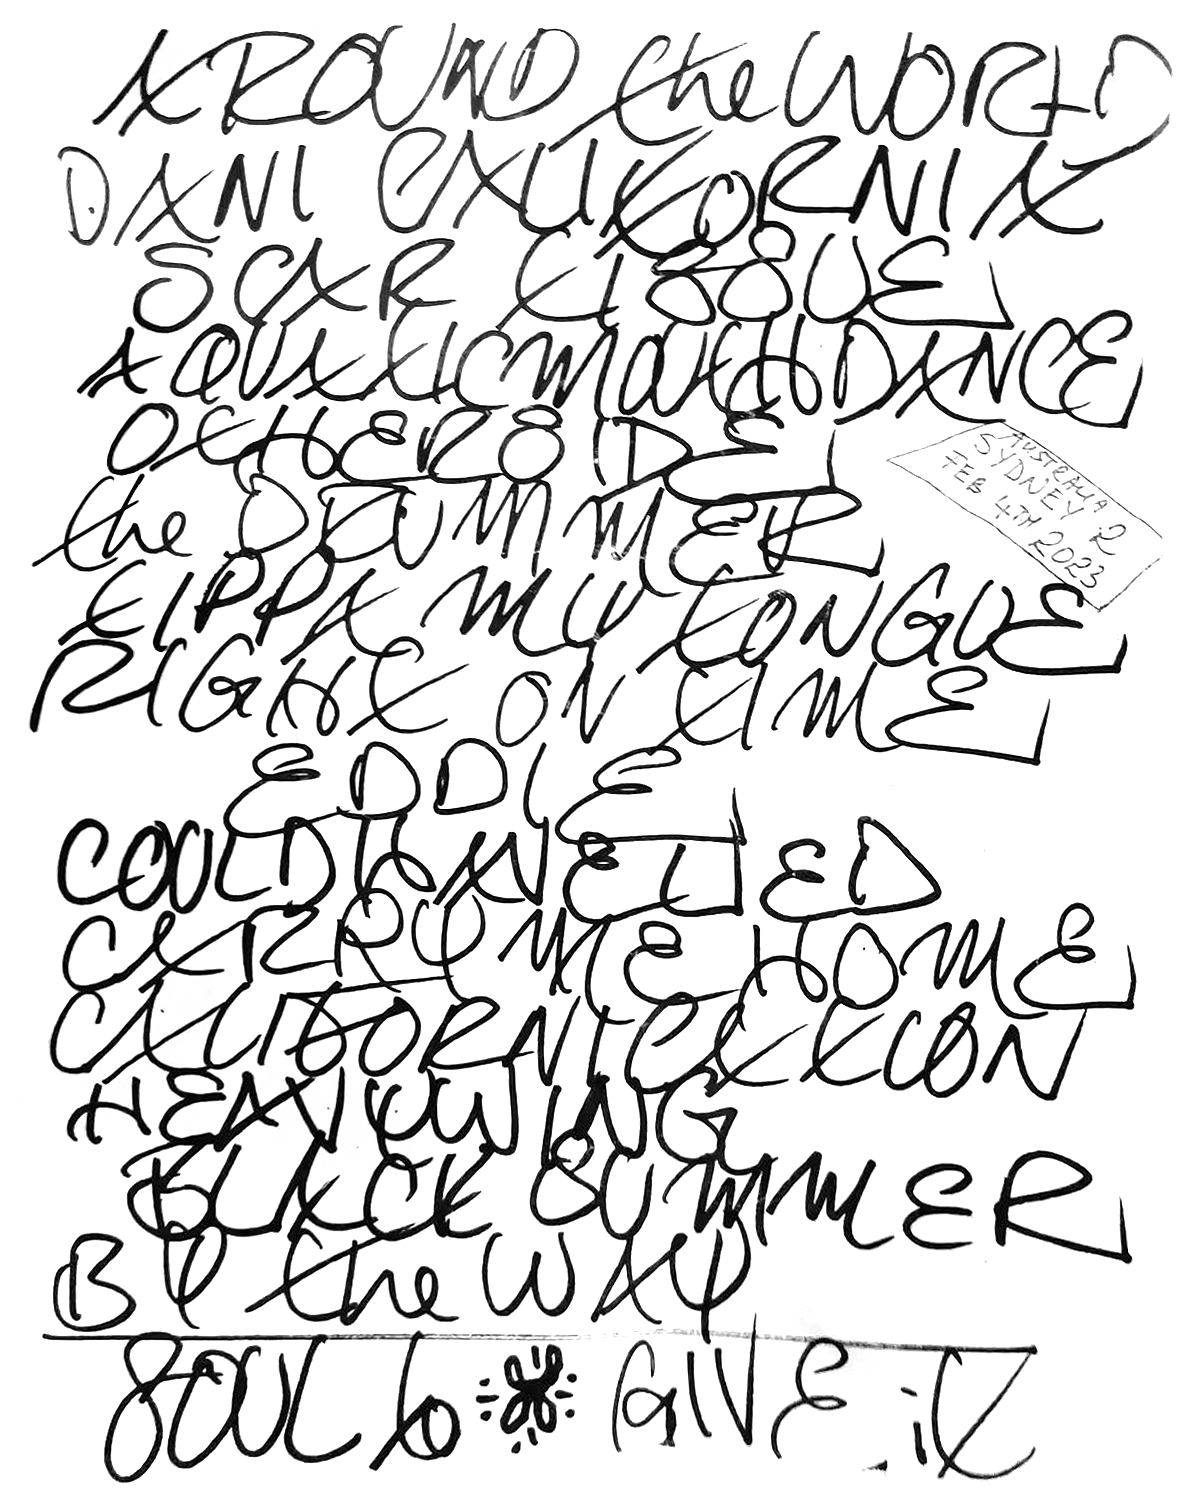 AROUND the WORLD
DANI CALIFORNIA
SCAR TISSUE
AQUATICMOUTHDANCE
OTHERSIDE
the DRUMMER
TIPPA MY TONGUE
RIGHT ON TIME
EDDIE
COULDHAVELIED
CARRYMEHOME
CALIFORNICATION
HEAVYWING
BLACK SUMMER
BY the WAY
SOUL to
GIVE it
AUSTRALIA
SYDNEY .2
FEB 4TH 2023